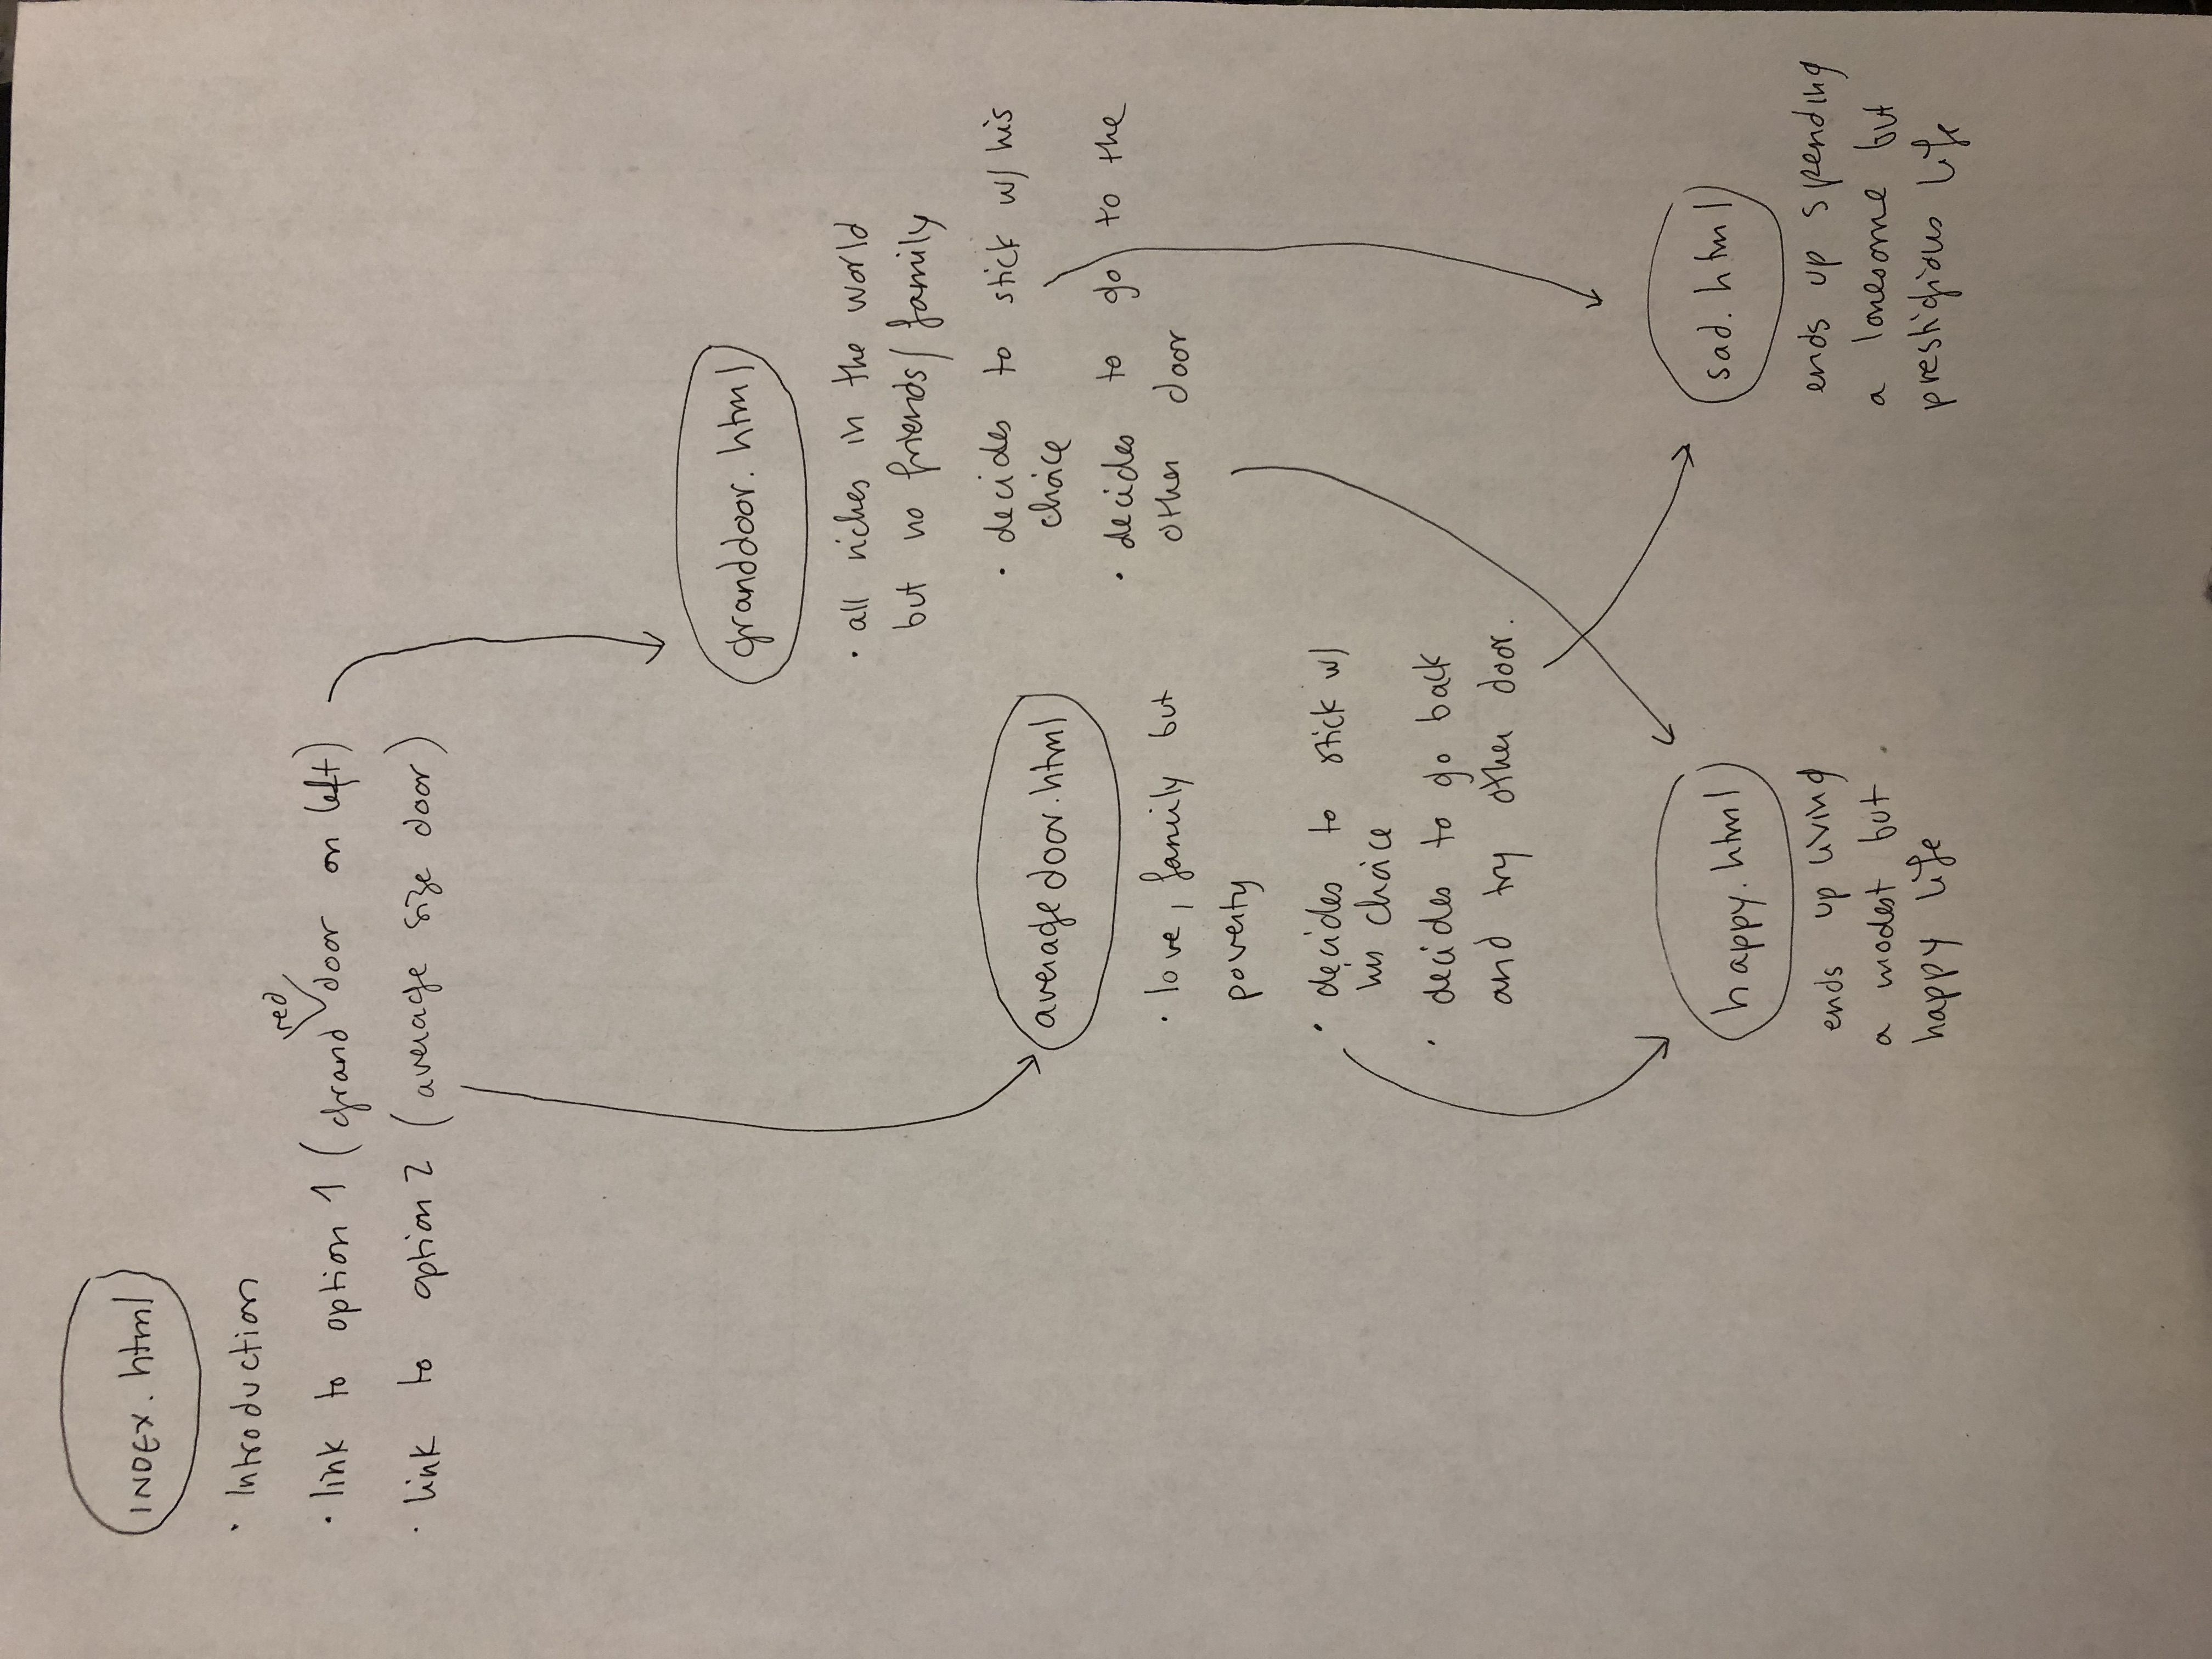 INDEX.html
· Introduction
red
· link to option 1 (grand door on left)
· link to option 2 (average size door)
granddoor.html
· all riches in the world
but no friends/family
· decides to stick w/ his
choice
· decides to go to the
other door
averagedoor.html
· love, family but
poverty
· decides to stick w/
his choice
· decides to go back
and try other door.
happy.html
ends up living
a modest but
happy life
sad.html
ends up spending
a lonesome but
prestigious life